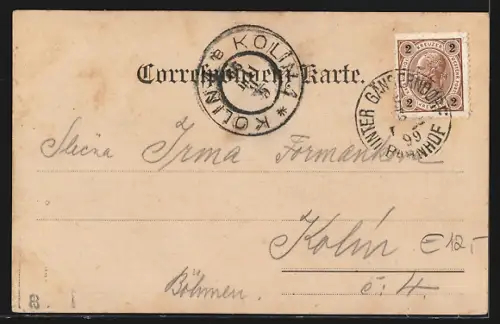 KOLIN * KOLÍN *
Correspondenz-Karte.
2 KREUZER 2
2 2
UNTER GÄNSERNDORF BAHNHOF
99
Slečna Irma Formánková
Kolín
E 12,-
č. 4.
Böhmen.